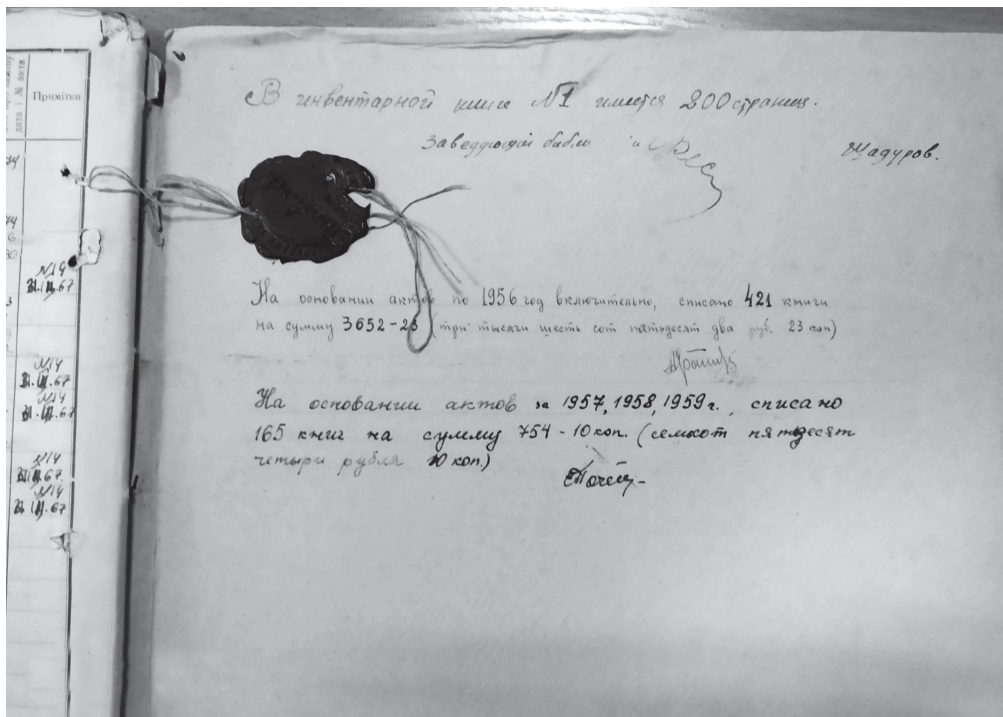 дата і № акта
Примітки
74
74
№14
31.III.67
№14
31.III.67
№14
31.III.67
№14
31.III.67.
№14
31.III.67
В инвентарной книге №1 имеется 200 страниц.
Заведующий библ
Щадуров.
На основании актов по 1956 год включительно, списано 421 книги
на сумму 3652-23 (три тысячи шесть сот пятьдесят два руб. 23 коп)
На основании актов за 1957, 1958, 1959 г., списано
165 книг на сумму 754-10 коп. (семьсот пятьдесят
четыри рубля 10 коп.)